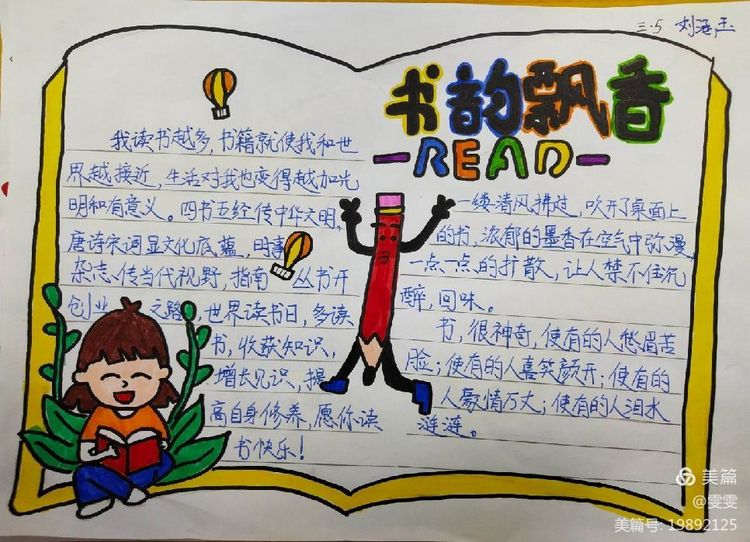 三.5 刘涵玉
书韵飘香
READ
我读书越多,书籍就使我和世
界越接近,生活对我也变得越加光
明和有意义。四书五经传中华文明,
唐诗宋词显文化底蕴,时事
杂志传当代视野,指南丛书开
创业之路,世界读书日,多读
书,收获知识,
增长见识,提
高自身修养,愿你读
书快乐!
一缕清风拂过,吹开了桌面上
的书,浓郁的墨香在空气中弥漫,
一点一点的扩散,让人禁不住沉
醉,回味。
书,很神奇,使有的人愁眉苦
脸;使有的人喜笑颜开;使有的
人豪情万丈;使有的人泪水
涟涟。
美篇
@雯雯
美篇号: 19892125